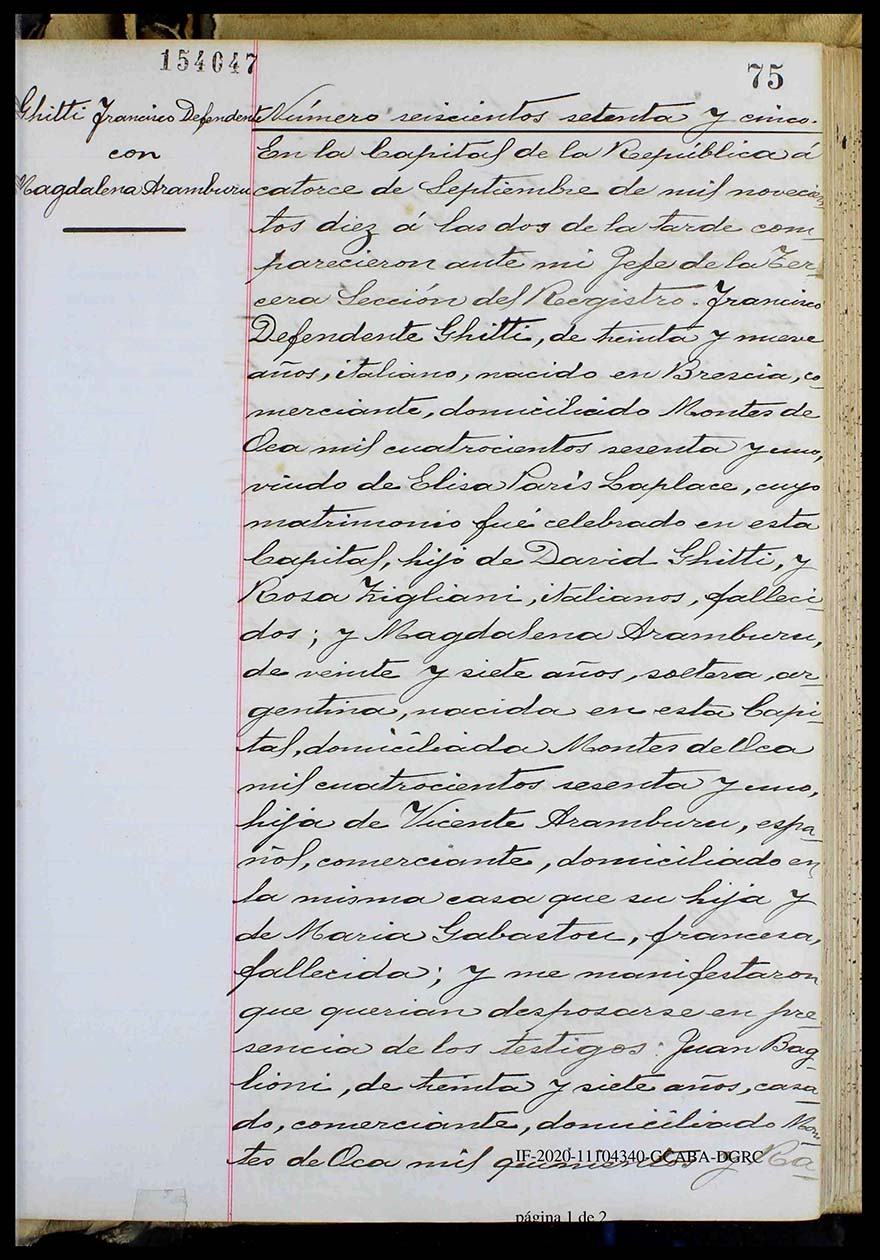 154047
75
Ghitti Francisco Defendente
con
Magdalena Aramburu
Número seiscientos setenta y cinco.
En la Capital de la República á
catorce de Septiembre de mil novecien-
tos diez á las dos de la tarde com-
parecieron ante mi Jefe de la Ter-
cera Sección del Registro. Francisco
Defendente Ghitti, de treinta y nueve
años, italiano, nacido en Brescia, co-
merciante, domiciliado Montes de
Oca mil cuatrocientos sesenta y uno,
viudo de Elisa Paris Laplace, cuyo
matrimonio fué celebrado en esta
Capital, hijo de David Ghitti, y
Rosa Zigliani, italianos, falleci-
dos; y Magdalena Aramburu,
de veinte y siete años, soltera, ar-
gentina, nacida en esta Capi-
tal, domiciliada Montes de Oca
mil cuatrocientos sesenta y uno,
hija de Vicente Aramburu, espa-
ñol, comerciante, domiciliado en
la misma casa que su hija y
de Maria Gabastou, francesa,
fallecida; y me manifestaron
que querian desposarse en pre-
sencia de los testigos: Juan Bag-
lioni, de treinta y siete años, casa-
do, comerciante, domiciliado Mon-
tes de Oca mil quinientos y Ra-
IF-2020-11104340-GCABA-DGRC
página 1 de 2